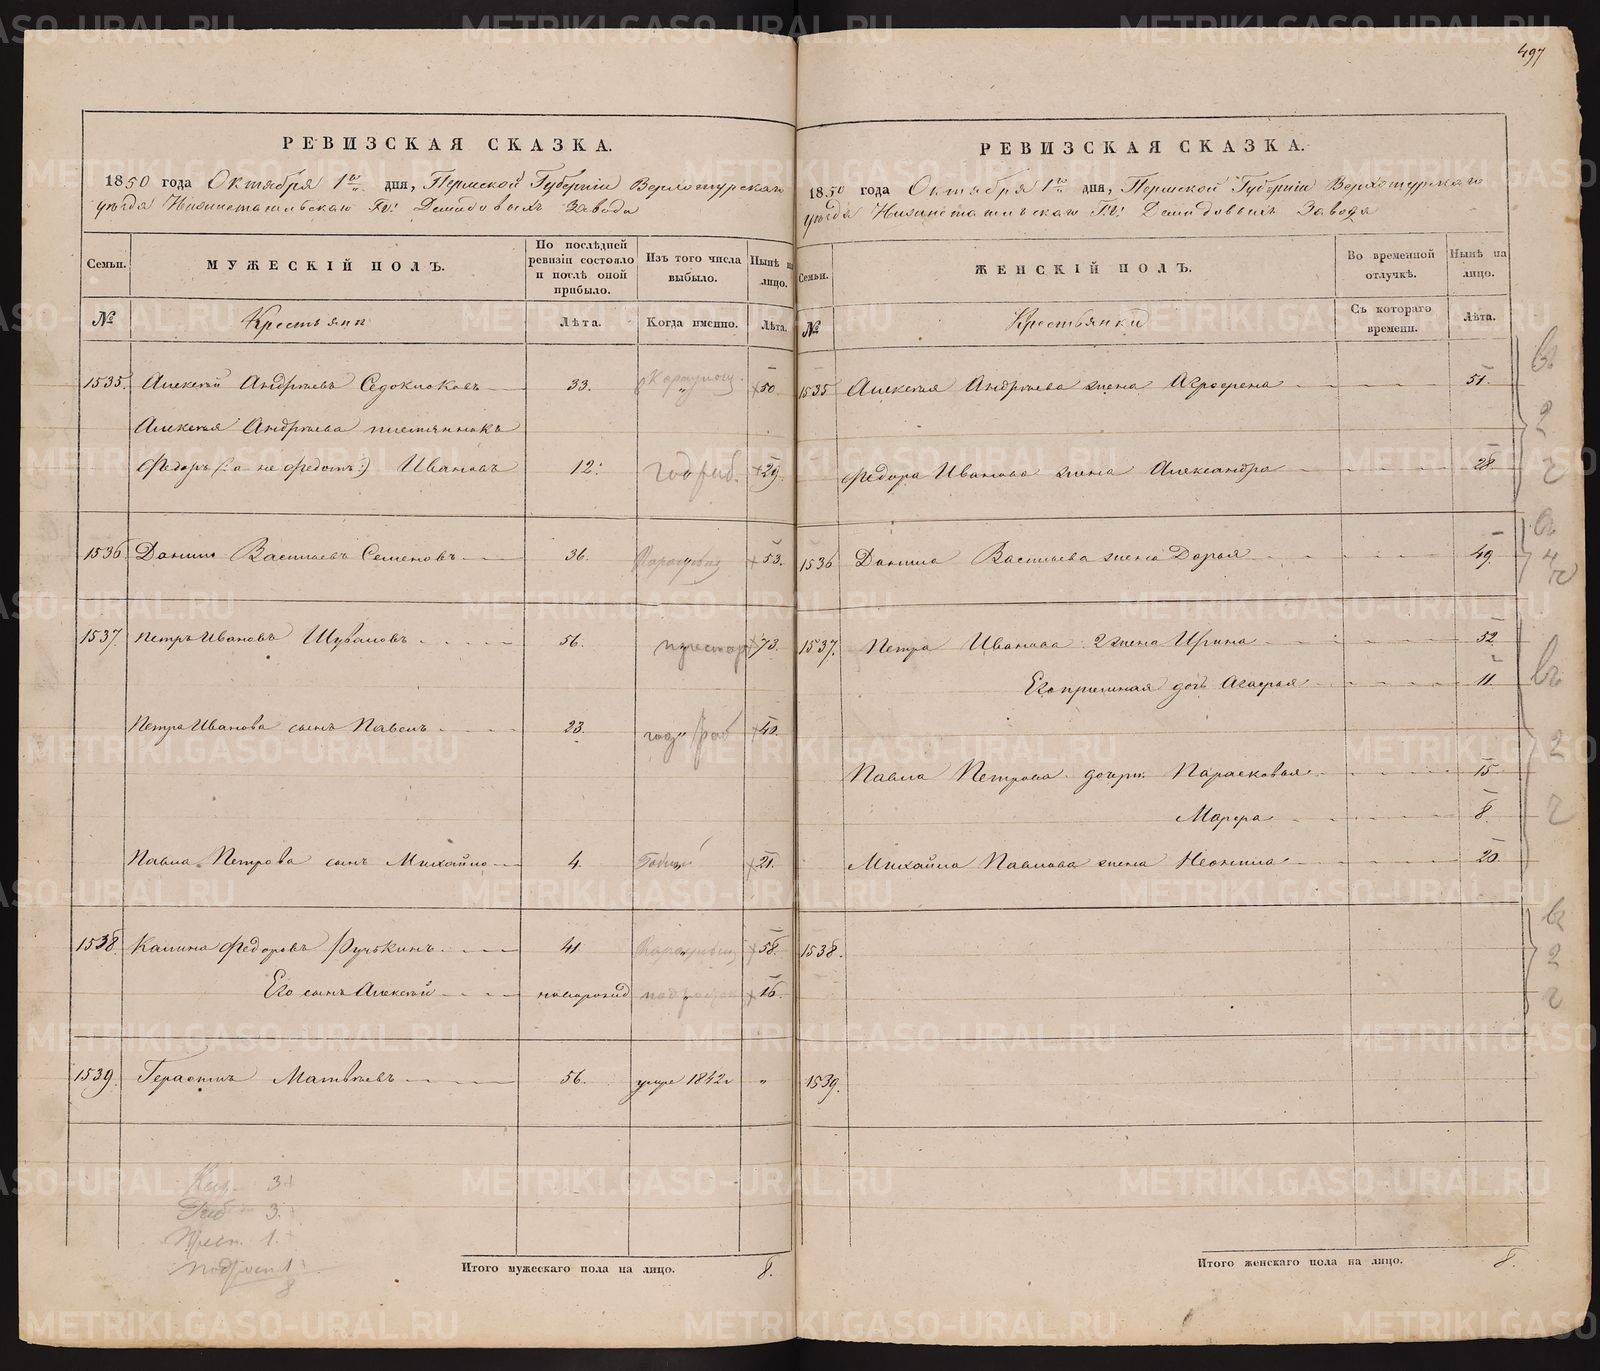 497
РЕВИЗСКАЯ СКАЗКА.
1850 года Октября 1го дня, Пермской Губернiи Верхотурскаго
уѣзда Нижнетагильскаго Гг: Демидовыхъ Завода
Семьи.
МУЖЕСКIЙ ПОЛЪ.
По послѣдней ревизiи состояло и послѣ оной прибыло.
Изъ того числа выбыло.
Нынѣ на лицо.
№
Крестьяне
Лѣта.
Когда именно.
Лѣта.
1535. Алексѣй Андрѣевъ Седокноковъ 33. 50
Алексѣя Андрѣева племянникъ
Федоръ (: а не Федотъ:) Ивановъ 12. год раб. 29.
1536 Данило Васильевъ Семеновъ 36. 53.
1537. Петръ Ивановъ Шуваловъ 56. престар 73.
Петра Иванова сынъ Павелъ 23. год раб 40.
Павла Петрова сынъ Михайло 4. 21.
1538. Калина Федоровъ Ручкинъ 41 58.
Его сынъ Алексѣй новорожд 16.
1539. Герасимъ Матвѣевъ 56. умре 1842г "
3.
Раб 3.
Прест. 1.
подрост 1
8
Итого мужескаго пола на лицо. 8.
РЕВИЗСКАЯ СКАЗКА.
1850 года Октября 1го дня, Пермской Губернiи Верхотурскаго
уѣзда Нижнетагильскаго Гг: Демидовыхъ Завода
Семьи.
ЖЕНСКIЙ ПОЛЪ.
Во временной отлучкѣ.
Нынѣ на лицо.
№
Крестьянки
Съ котораго времени.
Лѣта.
1535 Алексѣя Андрѣева жена Агрофена 51.
Федора Иванова жена Александра 28.
1536 Данила Васильева жена Дарья 49.
1537. Петра Иванова 2 жена Ирина 52
Его приемная дочь Агафья 11.
Павла Петрова дочери Парасковья 15
Марфа 8.
Михайла Павлова жена Неонила 20.
1538.
1539.
Итого женскаго пола на лицо. 8.
METRIKI.GASO-URAL.RU